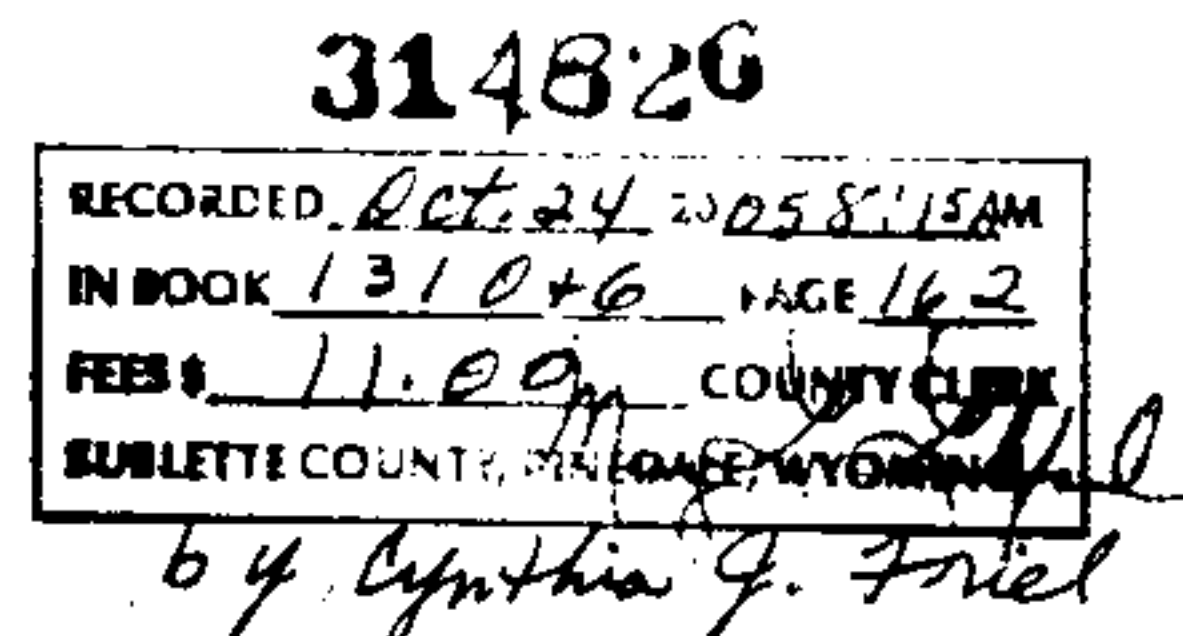 314820
RECORDED Oct. 24 2005 8:15 AM
IN BOOK 131 O+G PAGE 162
FEES $ 11.00 COUNTY CLERK
SUBLETTE COUNTY, PINEDALE, WYOMING
by Cynthia J. Friel